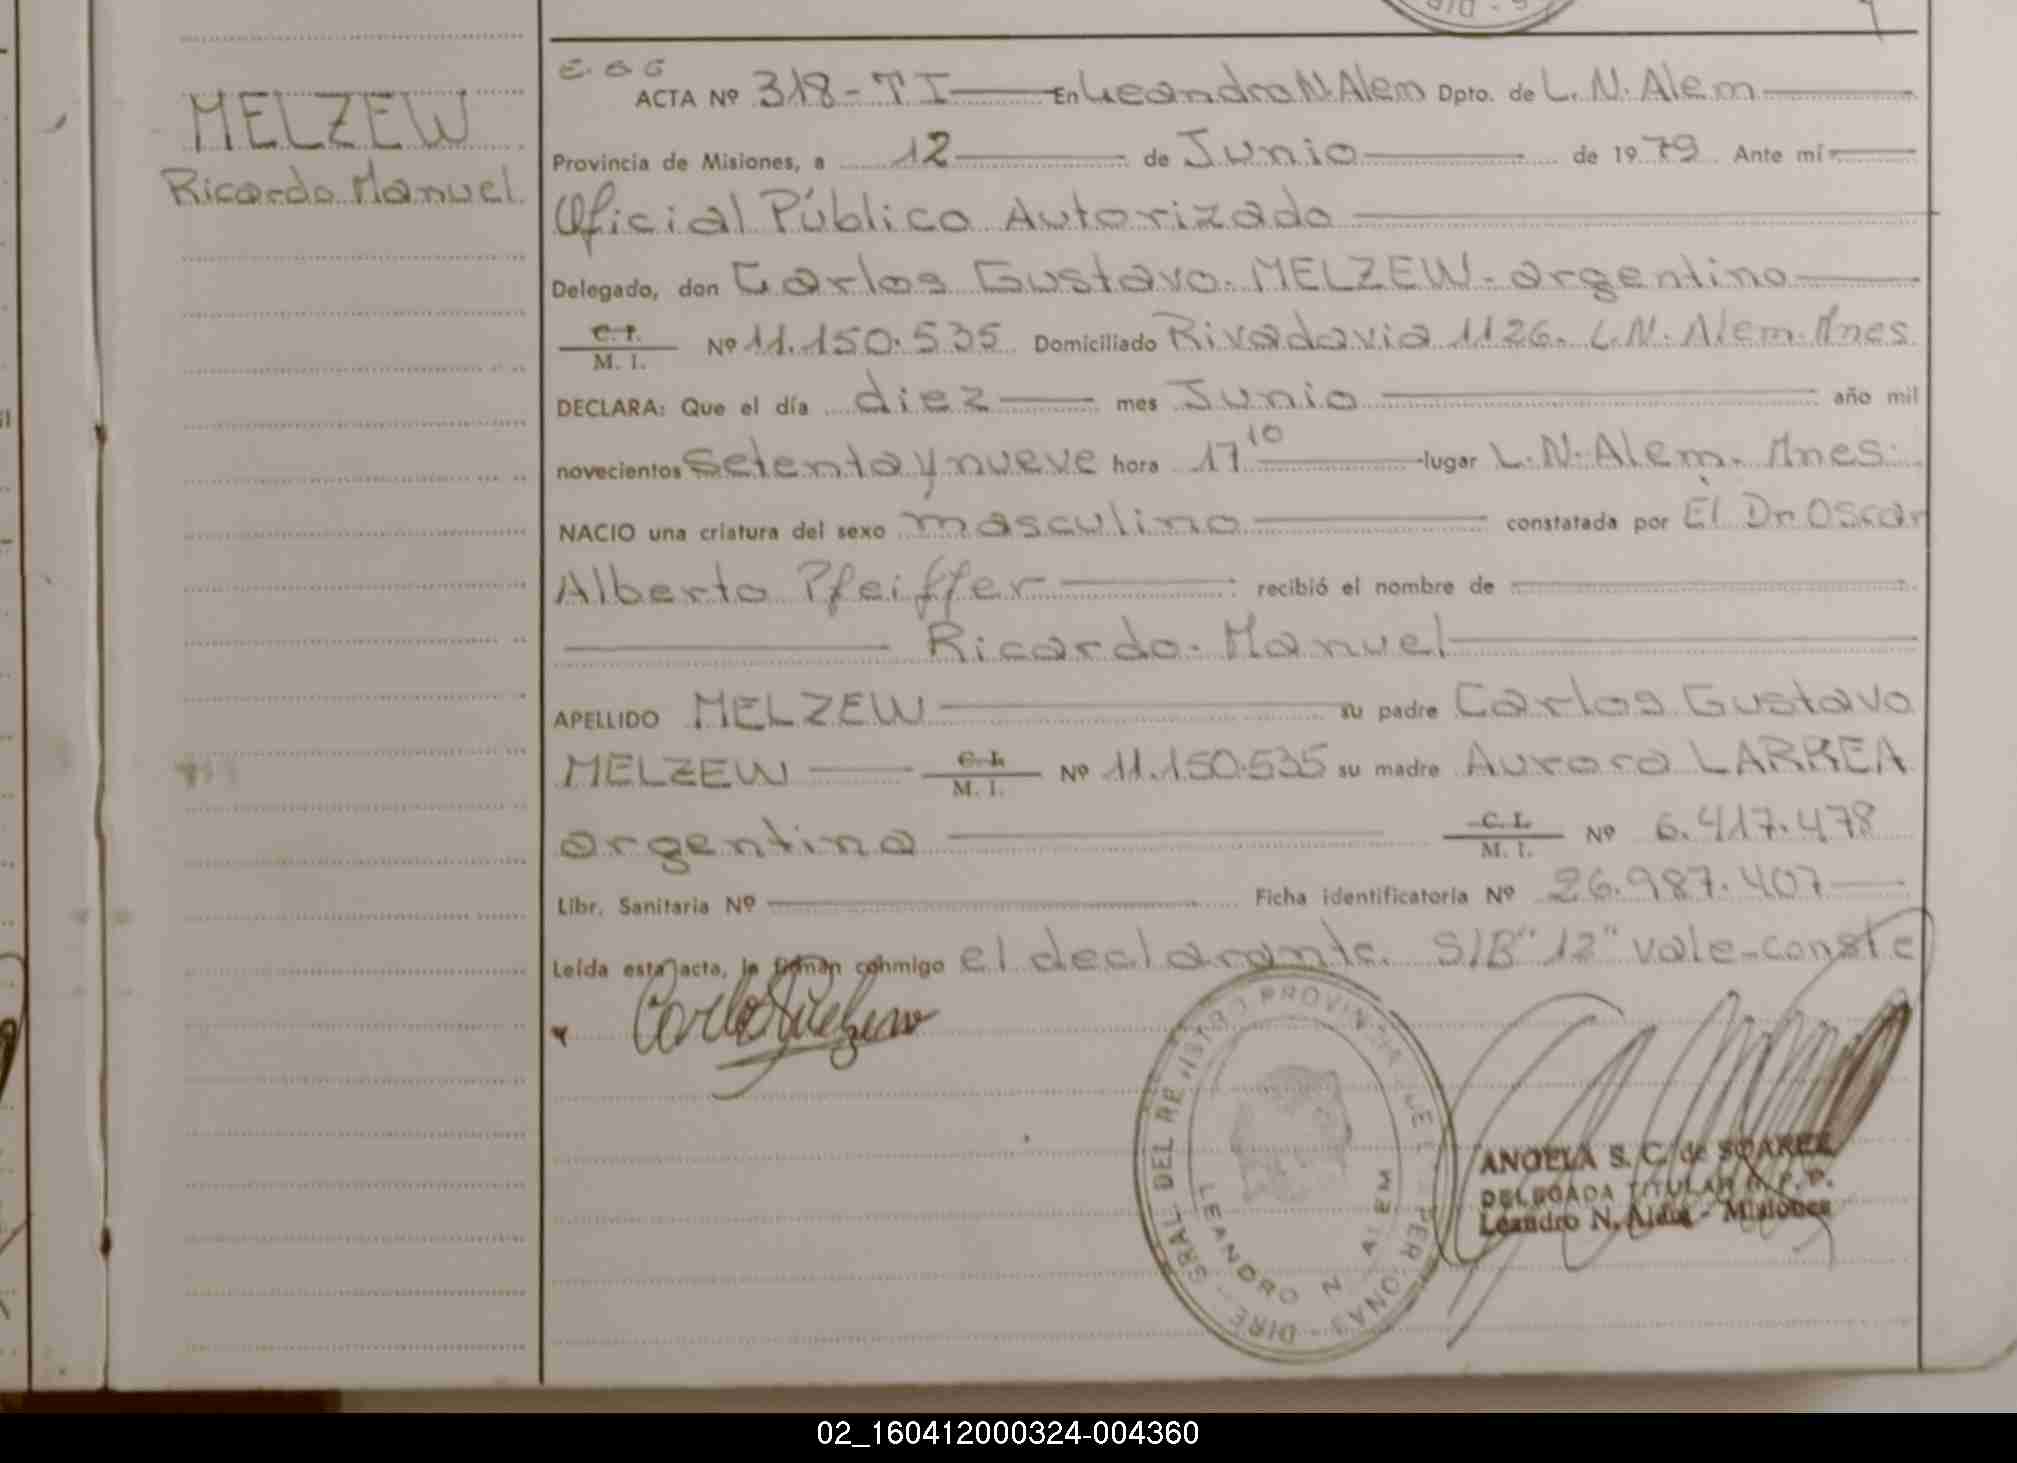 MELZEW
Ricardo Manuel
ACTA Nº 318-TI En Leandro N. Alem Dpto. de L. N. Alem
Provincia de Misiones, a 12 de Junio de 1979 Ante mí
Oficial Público Autorizado
Delegado, don Carlos Gustavo MELZEW - argentino
C. I.
M. I. Nº 11.150.535 Domiciliado Rivadavia 1126. L.N. Alem. Mnes
DECLARA: Que el día diez mes Junio año mil
novecientos setenta y nueve hora 17 10 lugar L.N. Alem. Mnes.
NACIO una criatura del sexo masculino constatada por El Dr Oscar
Alberto Pfeiffer recibió el nombre de
Ricardo Manuel
APELLIDO MELZEW su padre Carlos Gustavo
MELZEW C. I. M. I. Nº 11.150.535 su madre Aurora LARREA
argentina C. I. M. I. Nº 6.417.478
Libr. Sanitaria Nº Ficha identificatoria Nº 26.987.407
Leída esta acta, la firman conmigo el declarante. S/B "12" vale-conste
LEANDRO N. ALEM
ANGELA S. C. de SOAREZ
DELEGADA TITULAR R. P. P.
Leandro N. Alem - Misiones
02_160412000324-004360